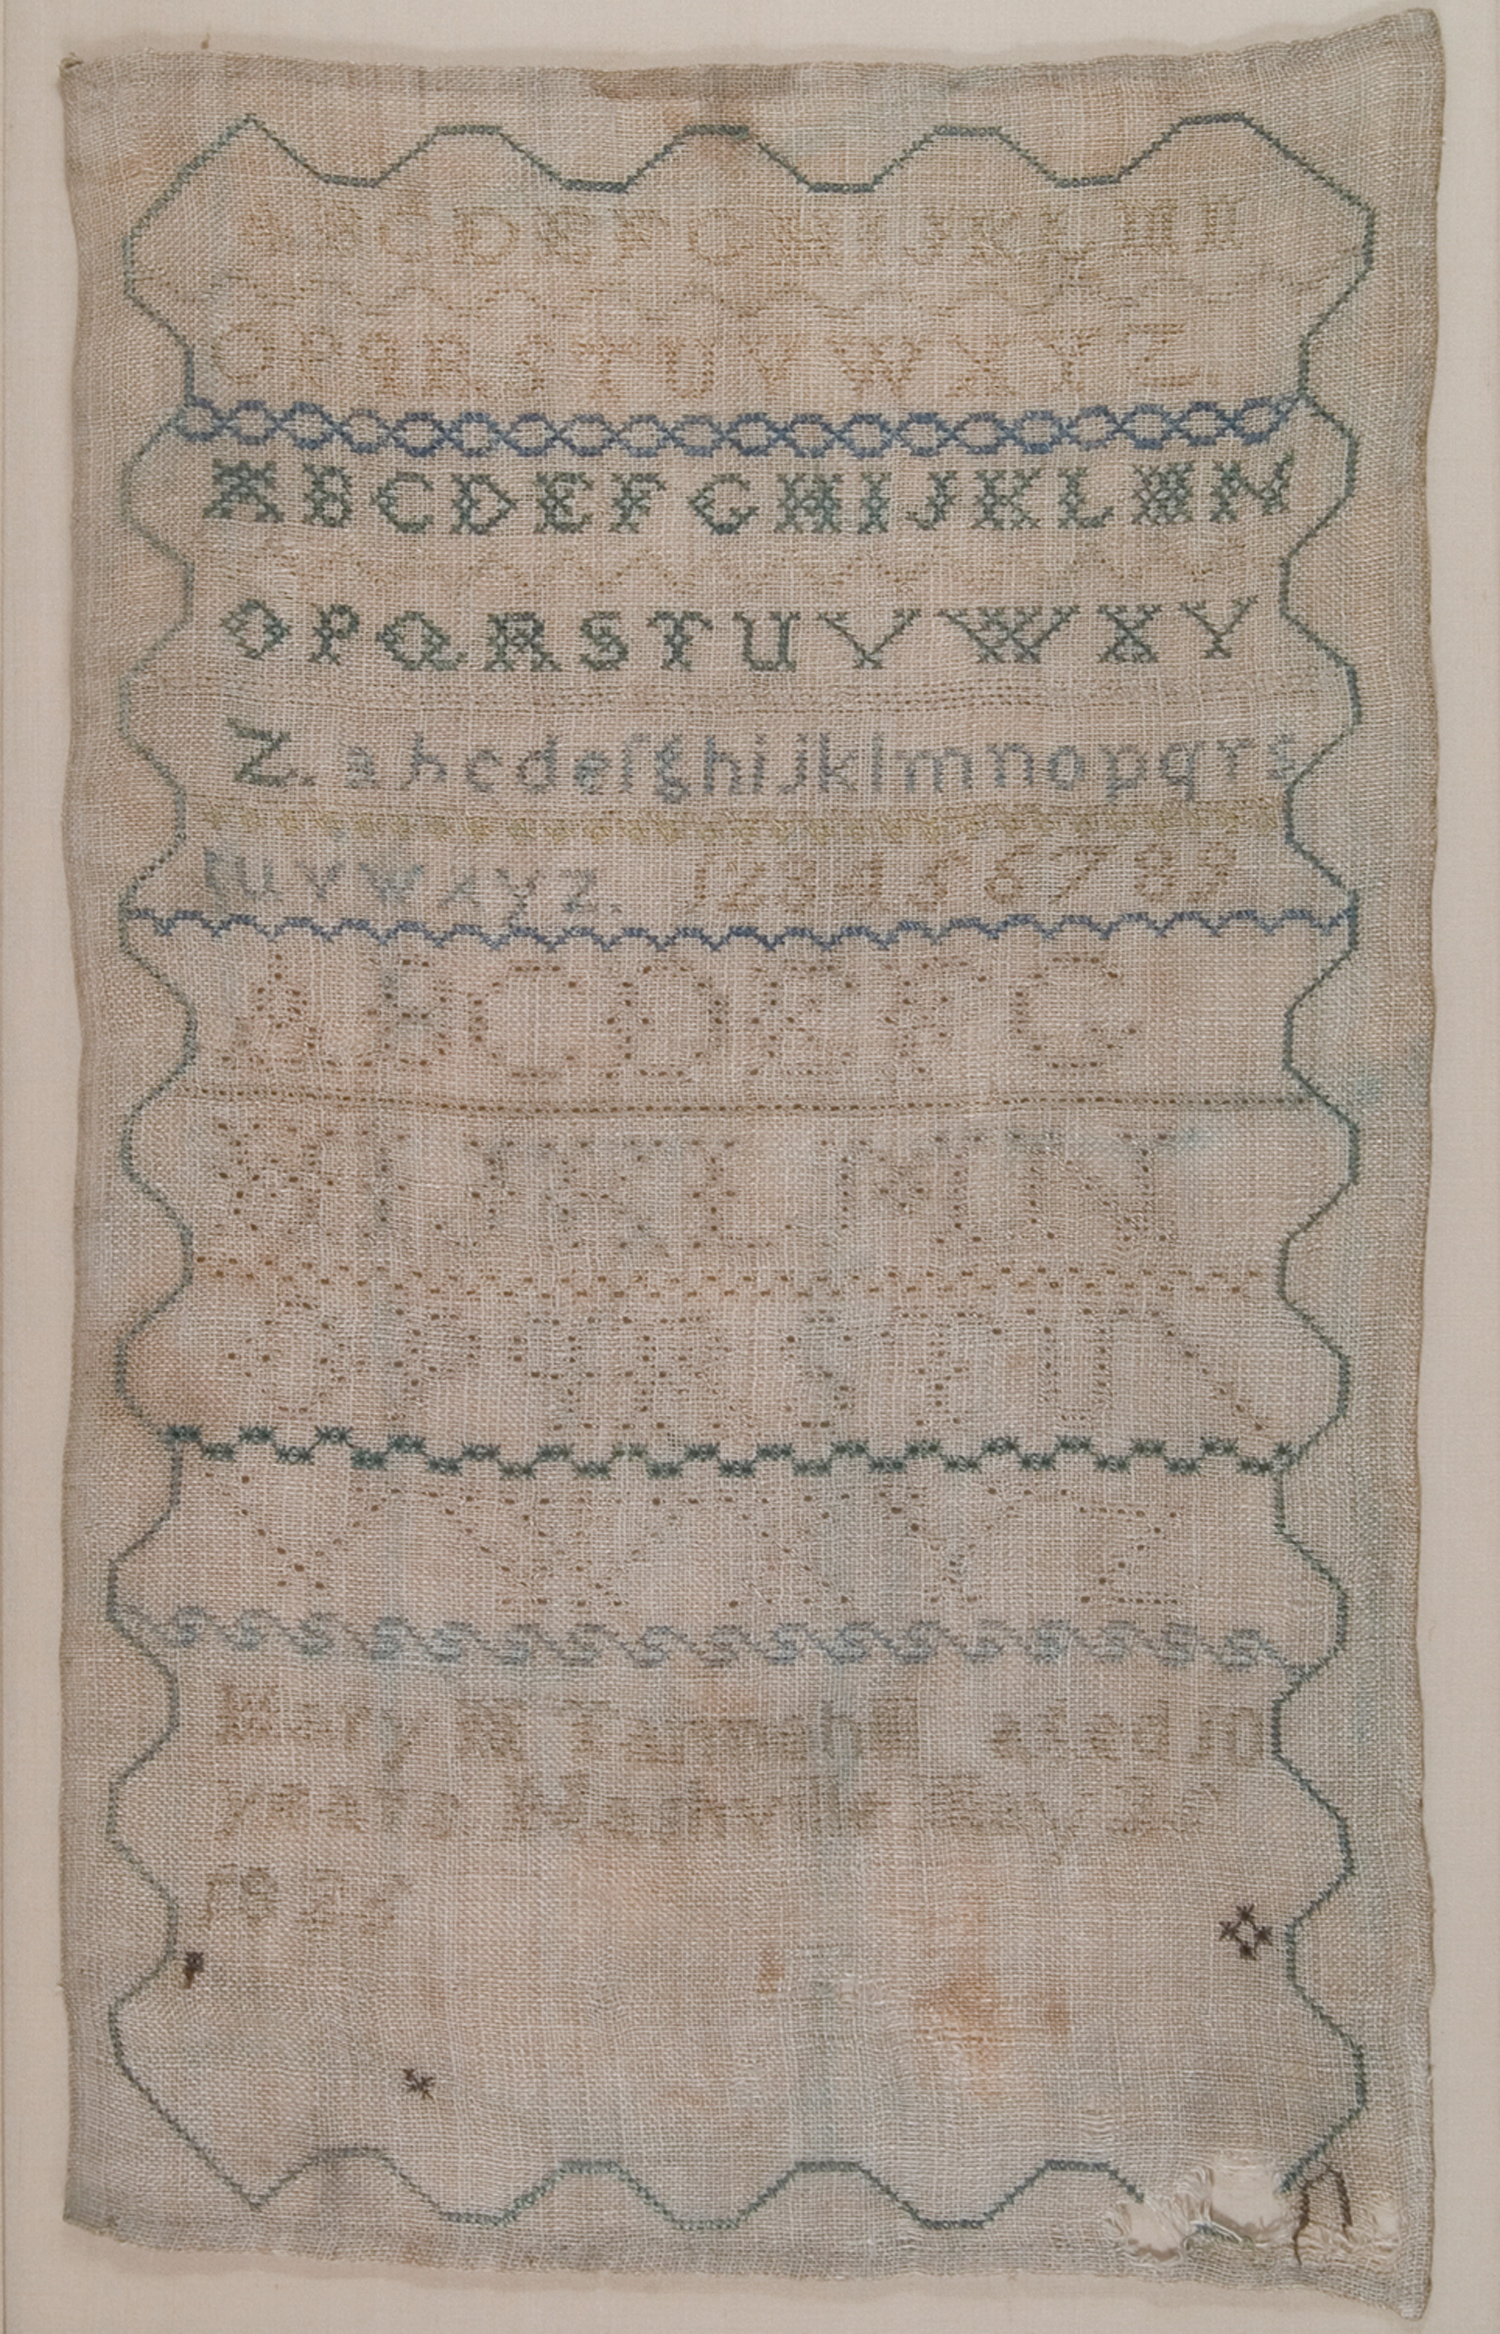 ABCDEFGHIJKLMN
OPQRSTUVWXYZ.
ABCDEFGHIJKLMN
OPQRSTUVWXY
Z. abcdefghijklmnopqrs
tuvwxyz. 123456789
ABCDEFG
HIJKLMN
OPQRSTU
VWXYZ
Mary Tannehill aged 10
years Nashville May